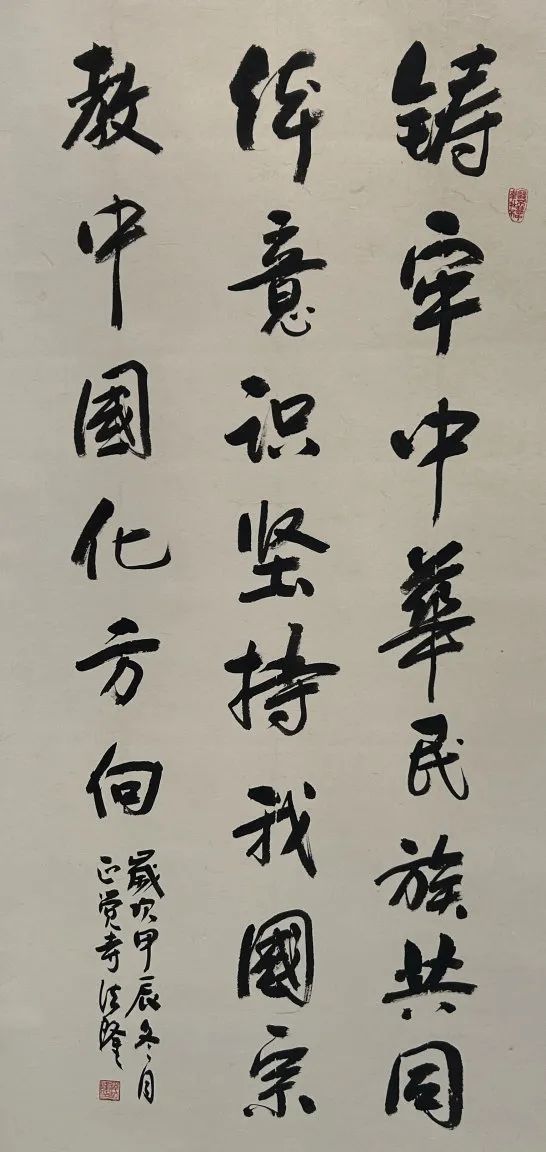 铸牢中华民族共同
体意识坚持我国宗
教中国化方向
歲次甲辰冬月
正觉寺法隆